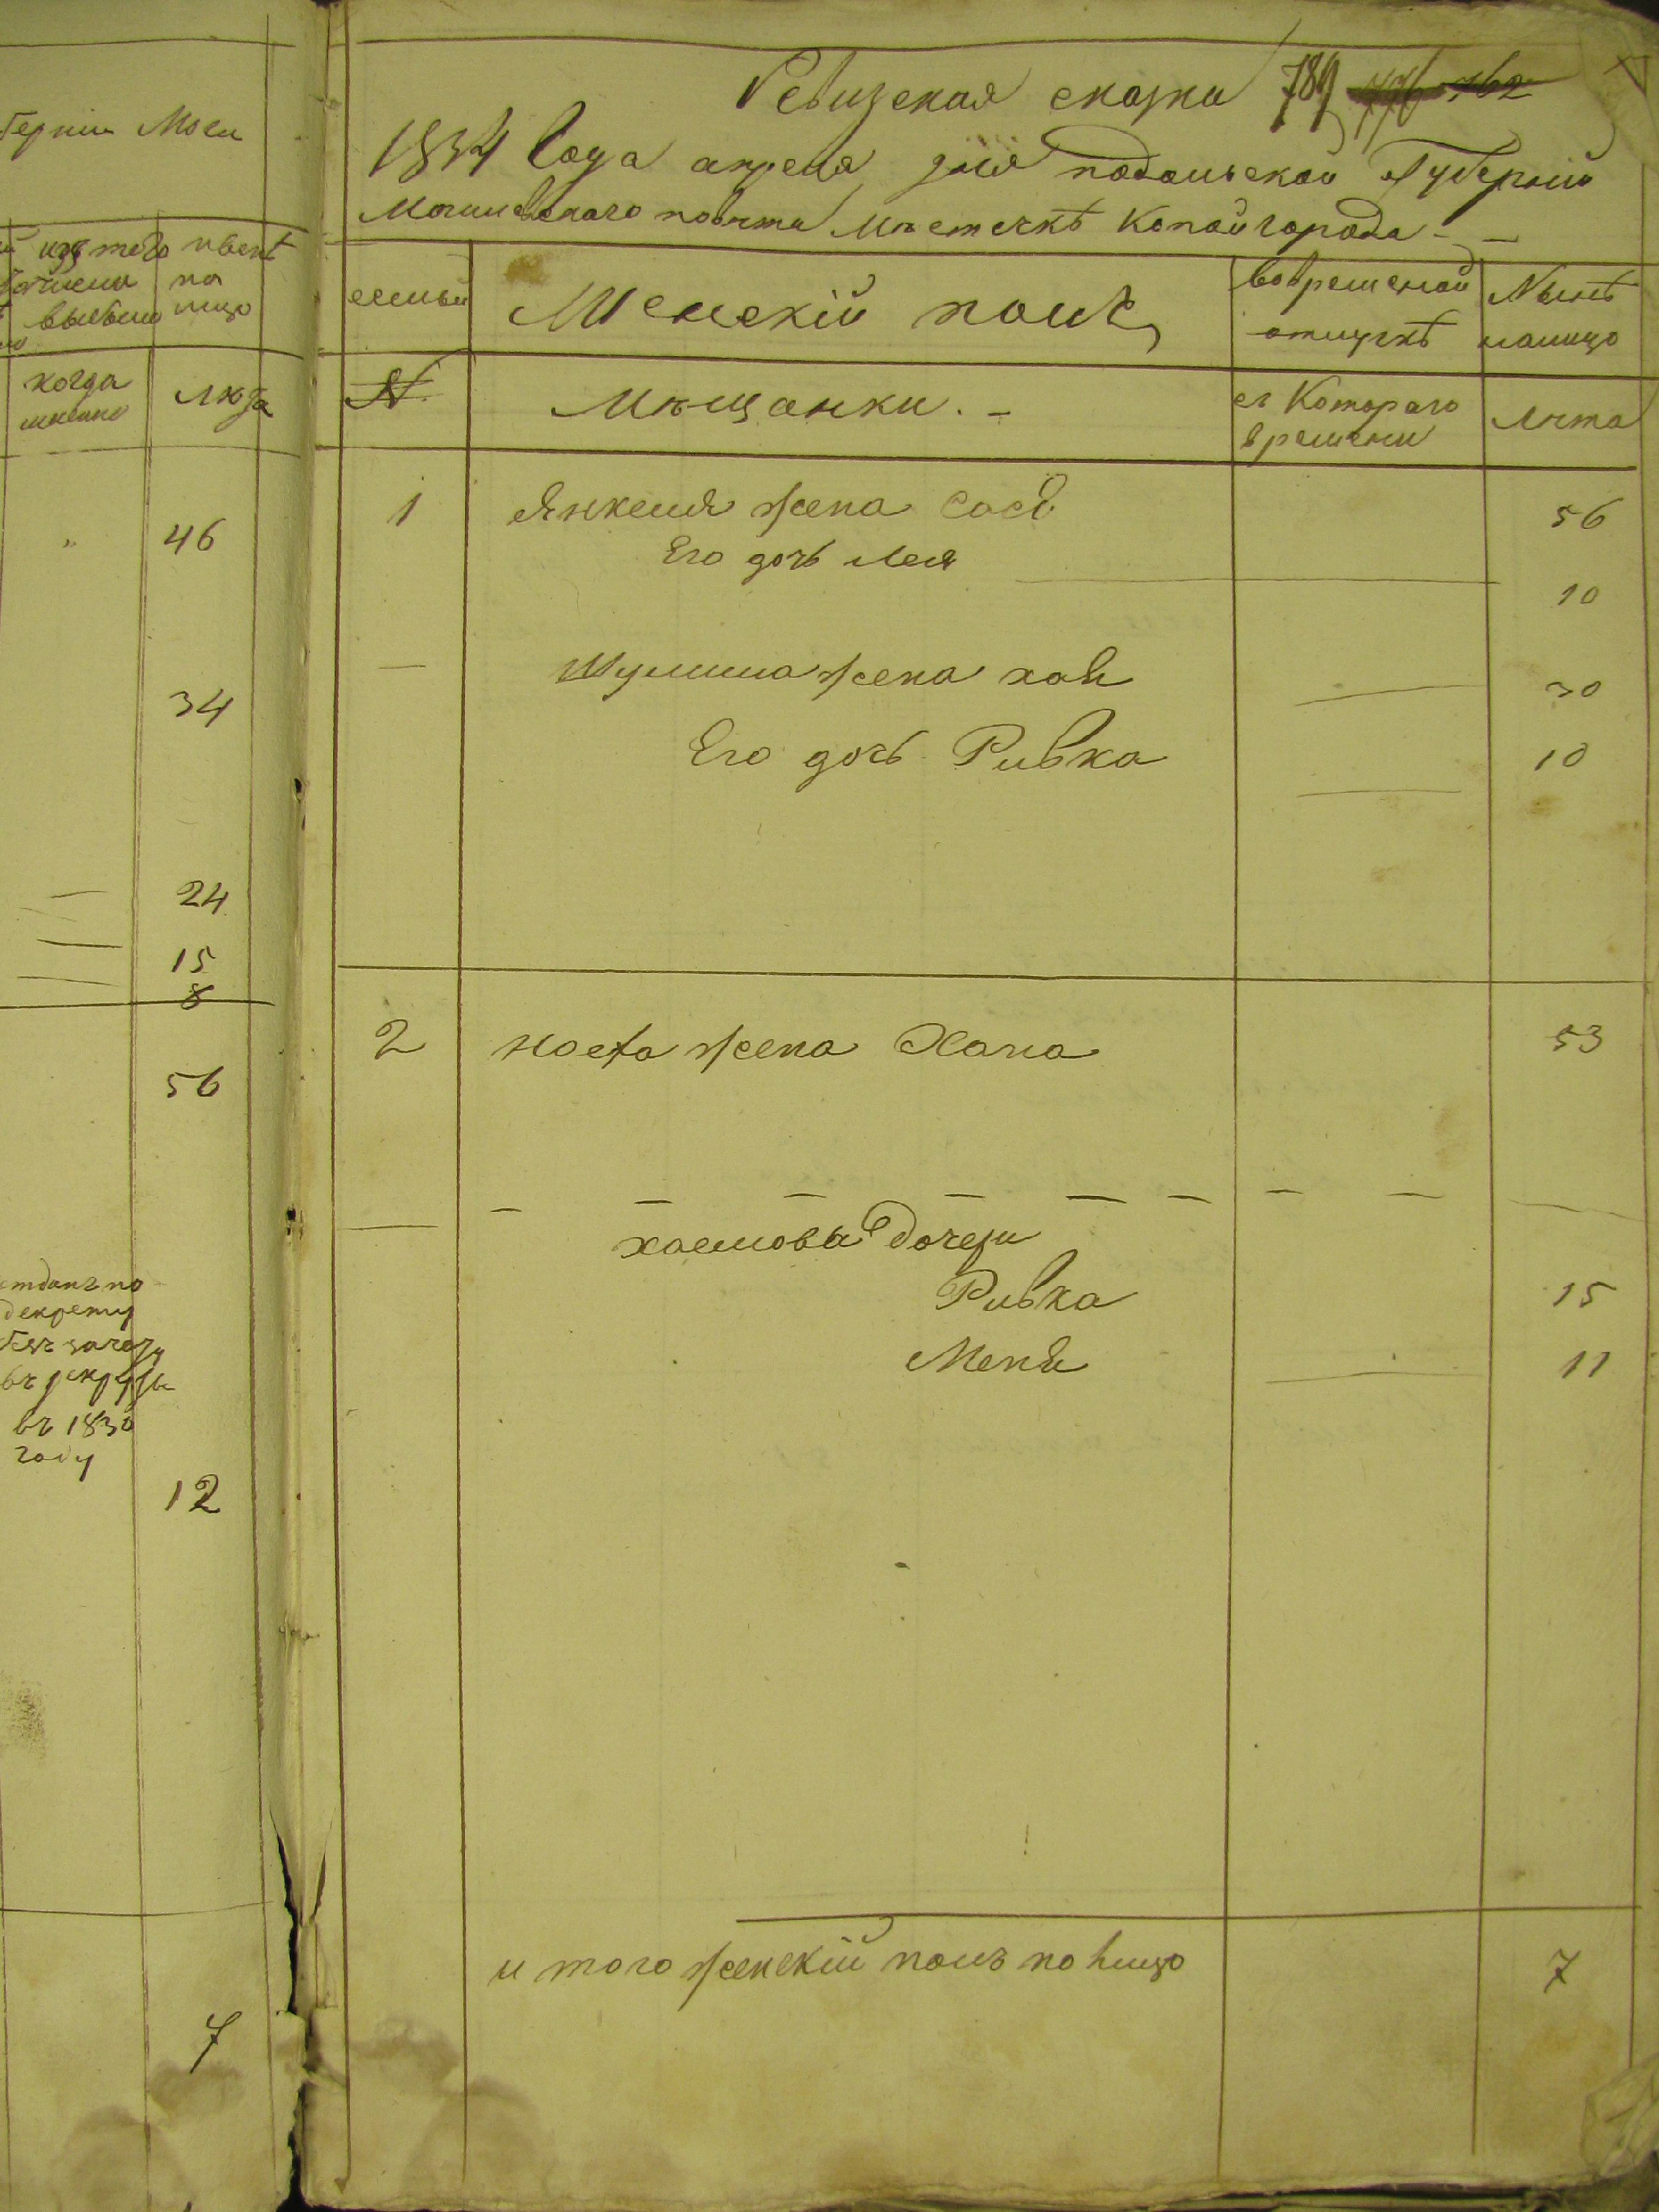 герніи Моги
изъ того
нвент
выбыло
на
лицо
когда
имено
люта
46
34
24
15
8
56
отданъ по
декрету
безъ зачоту
въ рекруты
въ 1830
году
12
7
Ревизская сказка 789 776 762
1834 Года апреля дня подольской Губерніи
Могилевского повѣта мѣстечкѣ Копайгорода
семьи
Женскій полъ
вовременой
отлучкѣ
Нынѣ
налицо
N.
Мѣщанки.
съ Котораго
времени
лѣта
1 Янкеля жена Сося 56
Его дочь Лея 10
Шулима жена хая 30
Его дочь Ривка 10
2 Иоста жена Хана 53
хаимова дочери
Ривка 15
Меня 11
и того женскій полъ на лицо 7